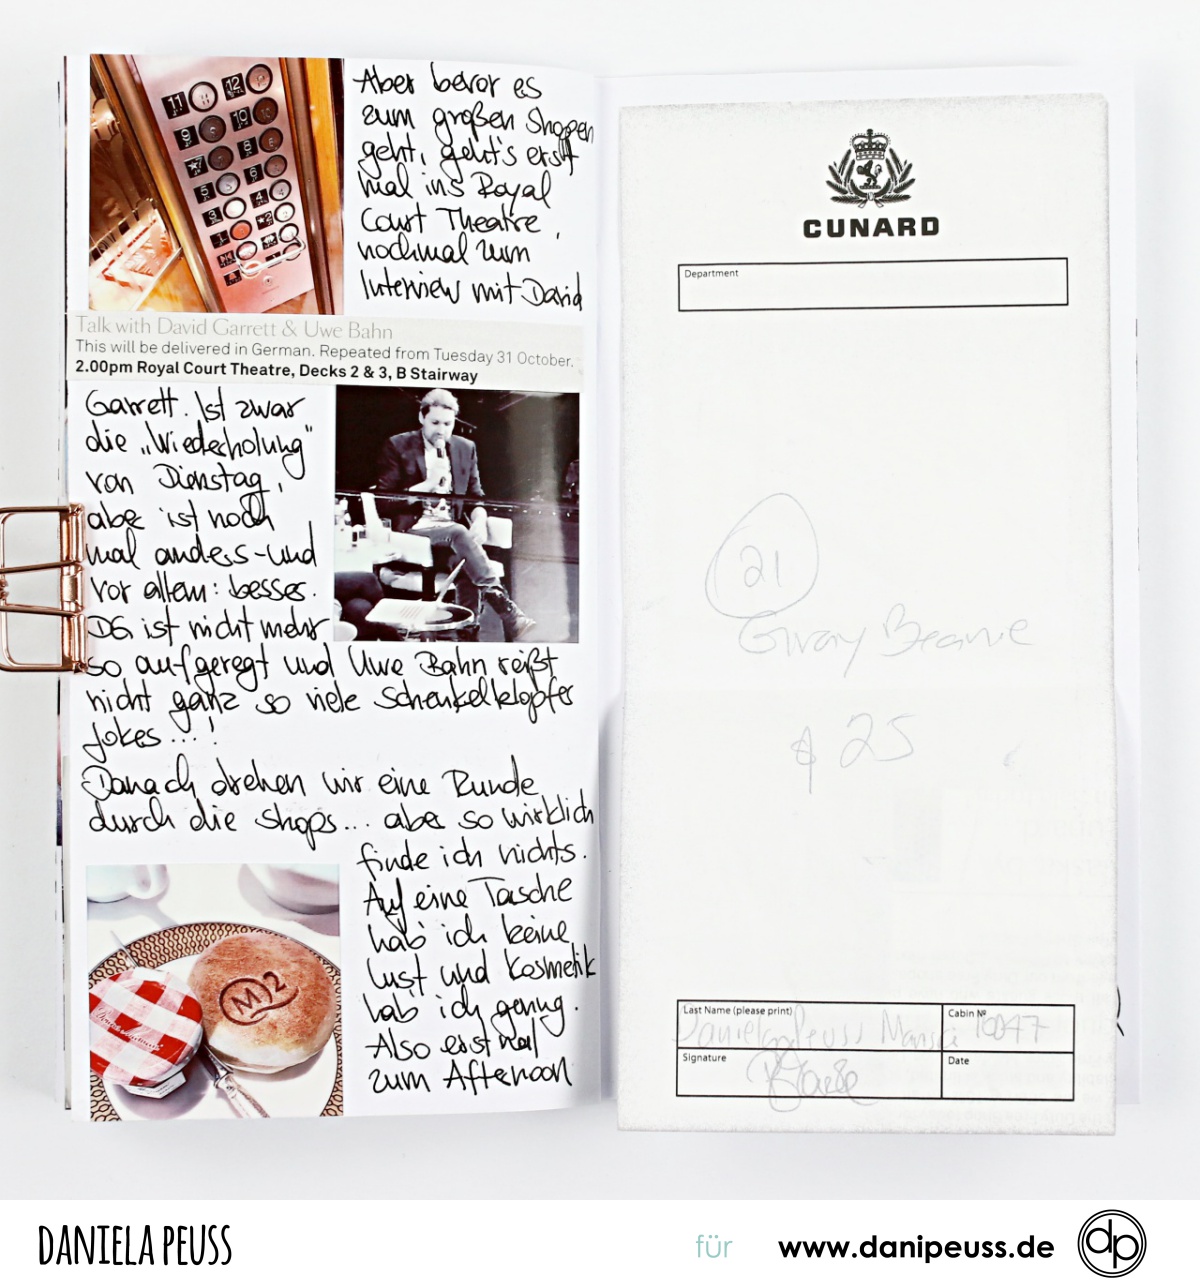 11 12
9 10
7 8
5 6
3 4
1 2
Aber bevor es
zum großen Shoppen
geht, geht's erst
mal ins Royal
Court Theatre,
nochmal zum
Interview mit David
Talk with David Garrett & Uwe Bahn
This will be delivered in German. Repeated from Tuesday 31 October.
2.00pm Royal Court Theatre, Decks 2 & 3, B Stairway
Garrett. Ist zwar
die „Wiederholung"
von Dienstag,
aber ist noch
mal anders - und
vor allem: besser.
DG ist nicht mehr
so aufgeregt und Uwe Bahn reißt
nicht ganz so viele Schenkelklopfer
Jokes...!
Danach drehen wir eine Runde
durch die Shops... aber so wirklich
finde ich nichts.
Auf eine Tasche
hab ich keine
Lust und Kosmetik
hab ich genug.
Also erst mal
zum Afternoon
M2
Bonne Maman
CUNARD
Department
21
Beanie
$ 25
Last Name (please print)
Daniela Peuss Manski
Cabin Nº
Signature
Date
DANIELA PEUSS
für
www.danipeuss.de
dp